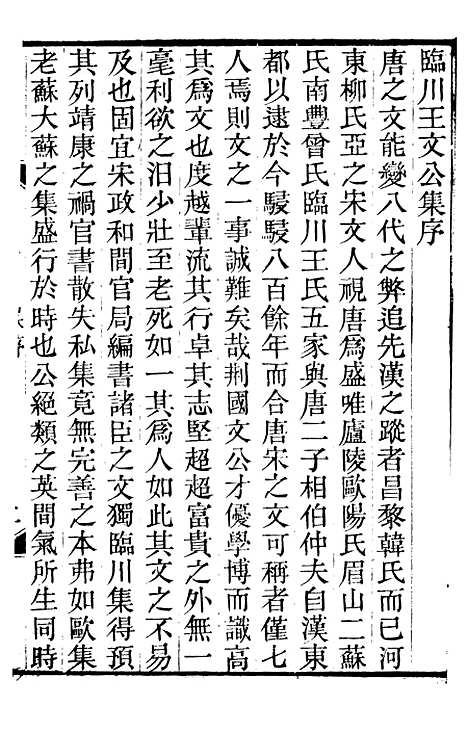 臨川王文公集序
唐之文能變八代之弊追先漢之蹤者昌黎韓氏而已河
東柳氏亞之宋文人視唐爲盛唯廬陵歐陽氏眉山二蘇
氏南豐曾氏臨川王氏五家與唐二子相伯仲夫自漢東
都以逮於今駸駸八百餘年而合唐宋之文可稱者僅七
人焉則文之一事誠難矣哉荆國文公才優學博而識高
其爲文也度越輩流其行卓其志堅超超富貴之外無一
毫利欲之汨少壯至老死如一其爲人如此其文之不易
及也固宜宋政和間官局編書諸臣之文獨臨川集得預
其列靖康之禍官書散失私集竟無完善之本弗如歐集
老蘇大蘇之集盛行於時也公絕類之英間氣所生同時